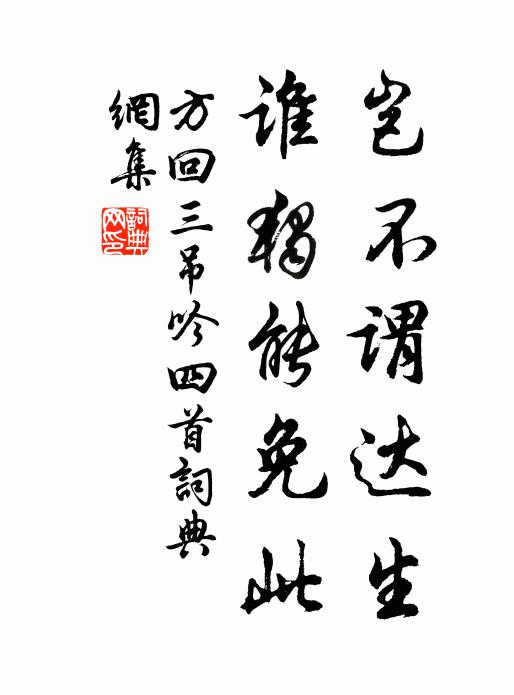 岂不谓达生
谁独能免此
方回三吊吟四首詞典
網集
詞典网印